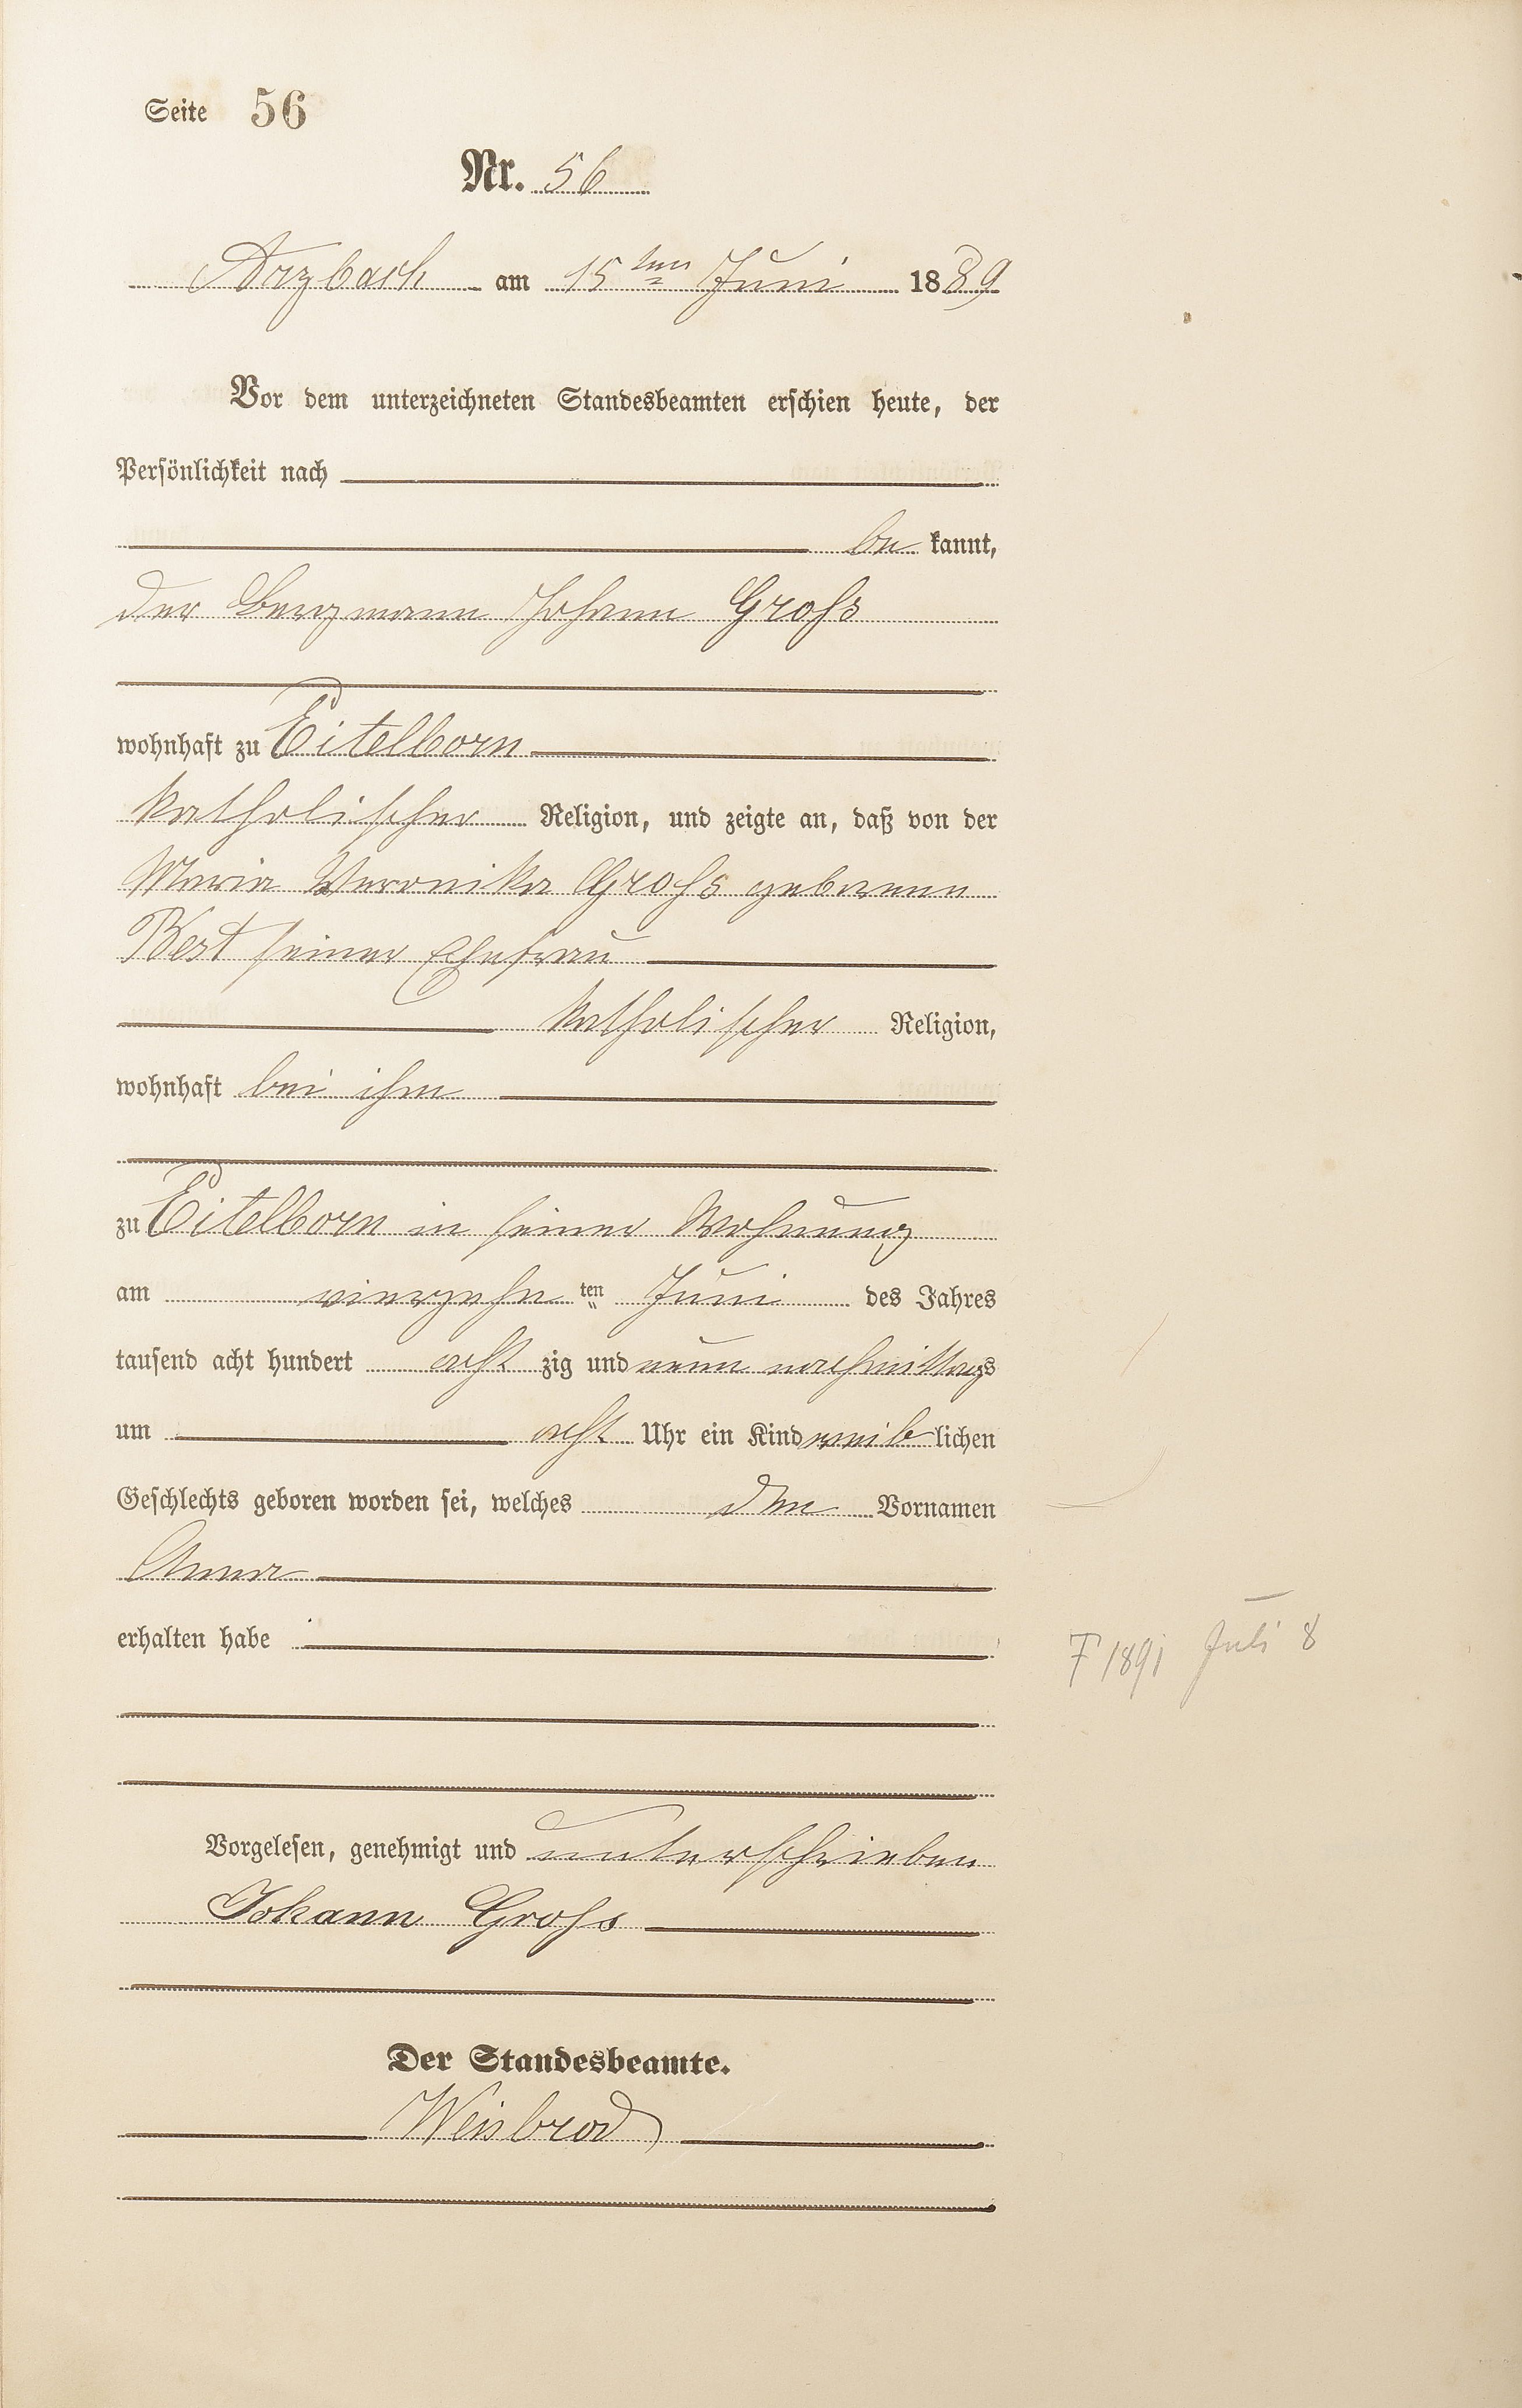 Seite 56
Nr. 56
Arzbach am 15ten Juni 1889
Vor dem unterzeichneten Standesbeamten erschien heute, der
Persönlichkeit nach
be kannt,
der Bergmann Johann Groß
wohnhaft zu Eitelborn
katholischer Religion, und zeigte an, daß von der
Maria Veronika Groß geborenen
Best seiner Ehefrau
katholischer Religion,
wohnhaft bei ihm
zu Eitelborn in seiner Wohnung
am vierzehn ten Juni des Jahres
tausend acht hundert acht zig und neun nachmittags
um acht Uhr ein Kind weib lichen
Geschlechts geboren worden sei, welches den Vornamen
Anna
erhalten habe
† 1891 Juli 8
Vorgelesen, genehmigt und unterschrieben
Johann Groß
Der Standesbeamte.
Weisbrod